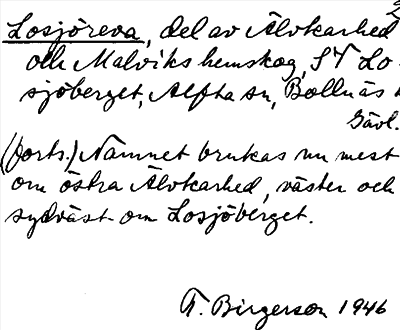 2
Losjöreva, del av Älvkarhed
och Malviks hemskog, ST Lo-
sjöberget, Alfta sn, Bollnäs
Gävl.
(forts.) Namnet brukas nu mest
om östra Älvkarhed, väster och
sydväst om Losjöberget.
T. Birgerson 1946